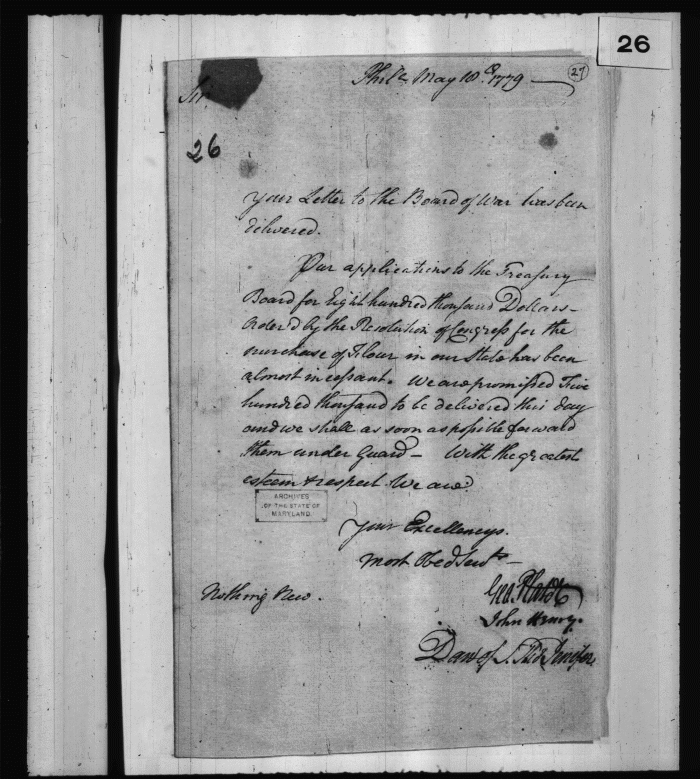 26
27
Phila. May 10th. 1779
Sir
26
Your Letter to the Board of War has been
delivered.
Our applications to the Treasury
Board for Eight hundred thousand Dollars
Order'd by the Resolution of Congress for the
purchase of Flour in our State has been
almost incessant. We are promissed Five
hundred thousand to be delivered this day
and we shall as soon as possible forward
them under Guard - With the greatest
esteem & respect We are
ARCHIVES
OF THE STATE OF
MARYLAND.
Your Excellencys.
most Obed Servts
Nothing New.
Geo. Plater
John Henry.
Dan of St. Thos Jenifer